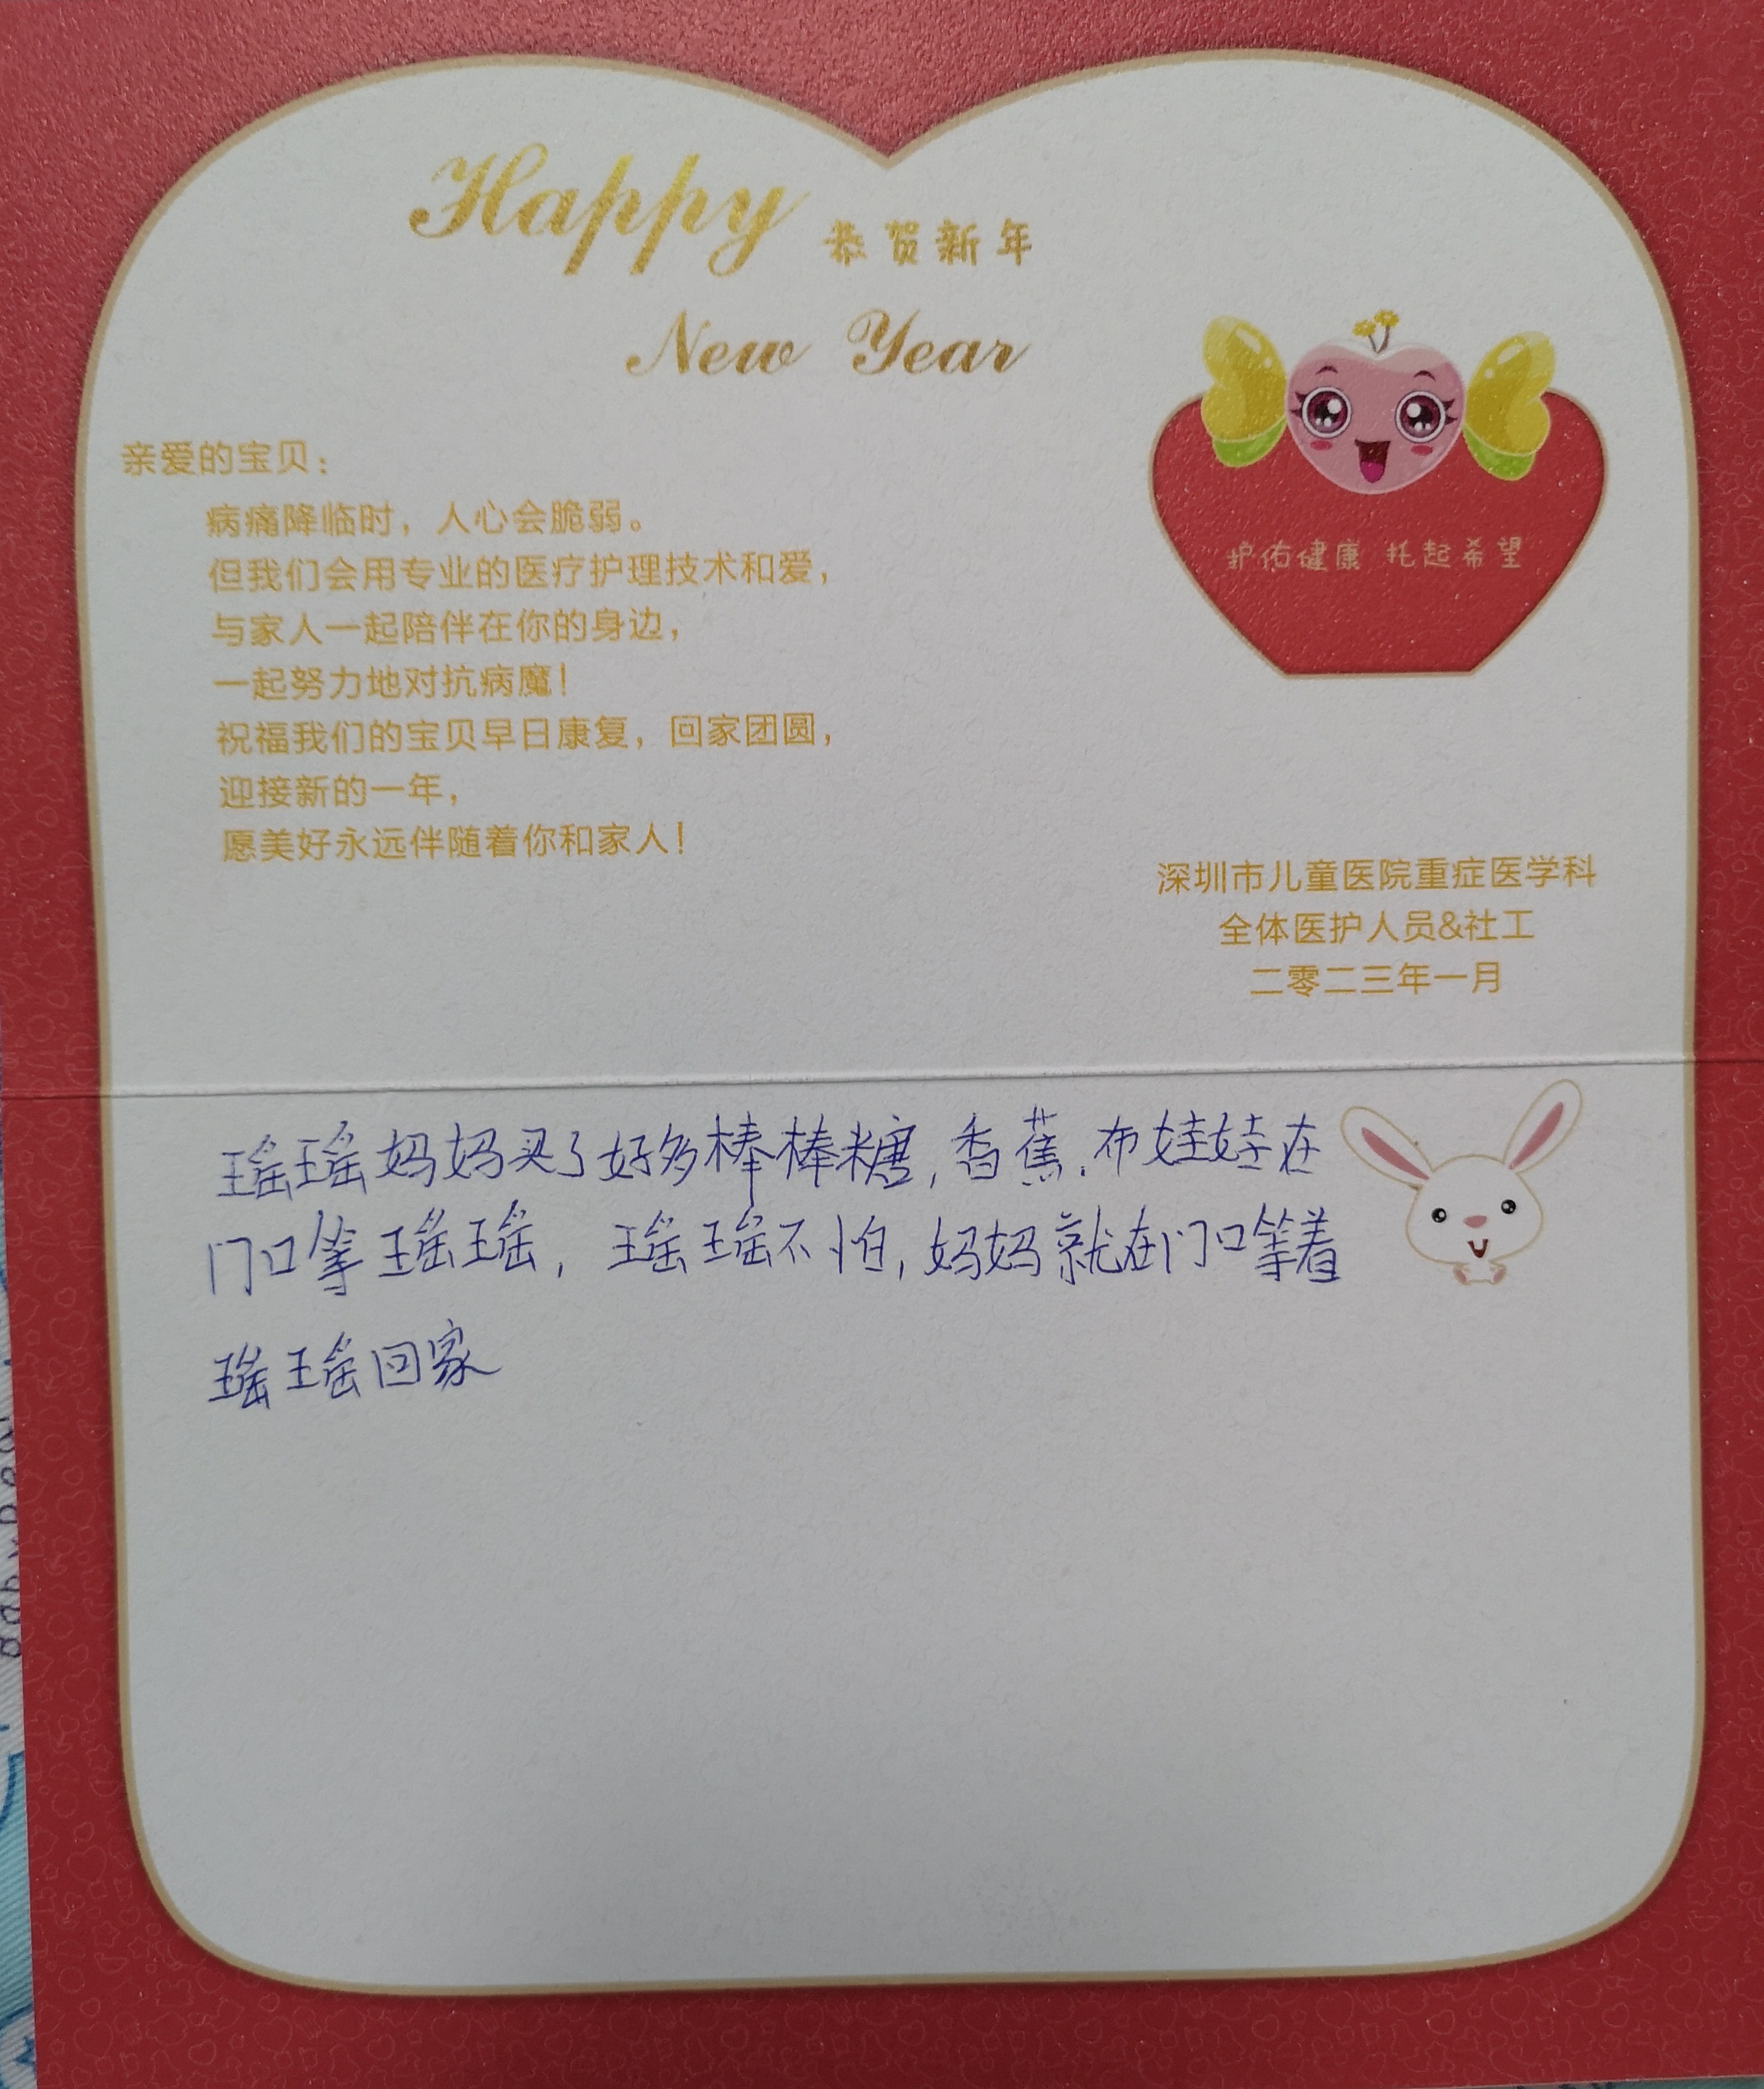 Happy 恭贺新年
New Year
护佑健康 托起希望
亲爱的宝贝：
病痛降临时，人心会脆弱。
但我们会用专业的医疗护理技术和爱，
与家人一起陪伴在你的身边，
一起努力地对抗病魔！
祝福我们的宝贝早日康复，回家团圆，
迎接新的一年，
愿美好永远伴随着你和家人！
深圳市儿童医院重症医学科
全体医护人员&社工
二零二三年一月
瑶瑶妈妈买了好多棒棒糖,香蕉.布娃娃在
门口等瑶瑶,瑶瑶不怕,妈妈就在门口等着
瑶瑶回家